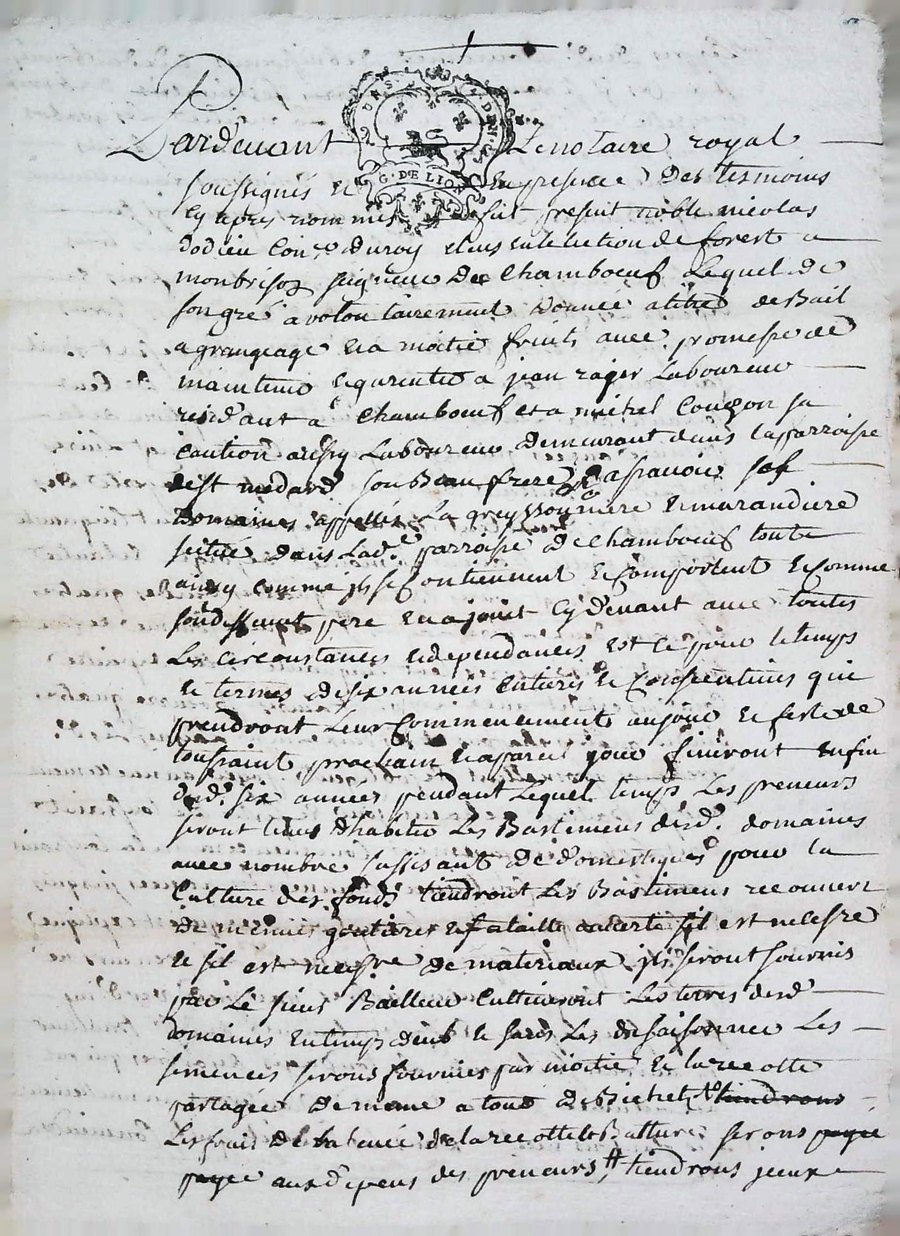 Pardevant Le notaire royal
G. DE LION
soussignés et en presence Des tesmoins
cy apres nommes fut present noble nicolas
dodieu con.er du roy en lelection de forest a
monbrison seigneur De Chambœuf Lequel de
son gré a volontairement donnee a titre de Bail
a grangeage et a moitié fruits avec promesse de
maintenir et garentir a jean rager Laboureur
residant a Chambœuf et a michel sa
caution aussy Laboureur demeurant dans la parroisse
de st medard son Beau frere a scavoir
Domaines appelles La et murandiere
scitue dans Lad.e parroisse de Chambœuf toute
ainsy comme ils se contiennent et comportent et comme
pere en a jouit cy devant avec toutes
Les circonstances et dependances et ce pour le temps
et termes de six années entieres et Consecutives qui
prendront Leur Commencement au jour et feste de
toussaint prochain et a pareil jour finiront enfin
desd. six années pendant Lequel temps Les preneurs
seront tenus d'habiter Les Bastimens desd. domaines
avec nombre suffisant de domestiques pour la
Culture des fonds tiendront Les Bastimens recouvert
de goutieres il est necesre
et sil est necesre de materiaux ils seront fournis
par Le sieur Bailleur Cultiveront Les terres desd
domaines en temps deub et sans Les dessaisonner Les
semences serons fournies par moitié et la recotte
partagée de meme a tous tiendrons
Les frais de la levée de la recotte et Batture serons payée
payee aux depens des preneurs tiendrons jceux